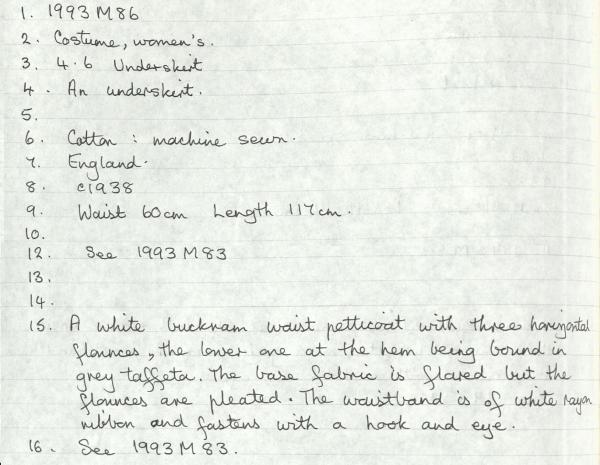 1. 1993 M 86
2. Costume, women's.
3. 4.6 Underskirt
4. An underskirt.
5.
6. Cotton : machine sewn.
7. England.
8. c1938
9. Waist 60cm Length 117cm.
10.
12. See 1993 M 83
13.
14.
15. A white buckram waist petticoat with three horizontal
flounces, the lower one at the hem being bound in
grey taffeta. The base fabric is flared but the
flounces are pleated. The waistband is of white rayon
ribbon and fastens with a hook and eye.
16. See 1993 M 83.